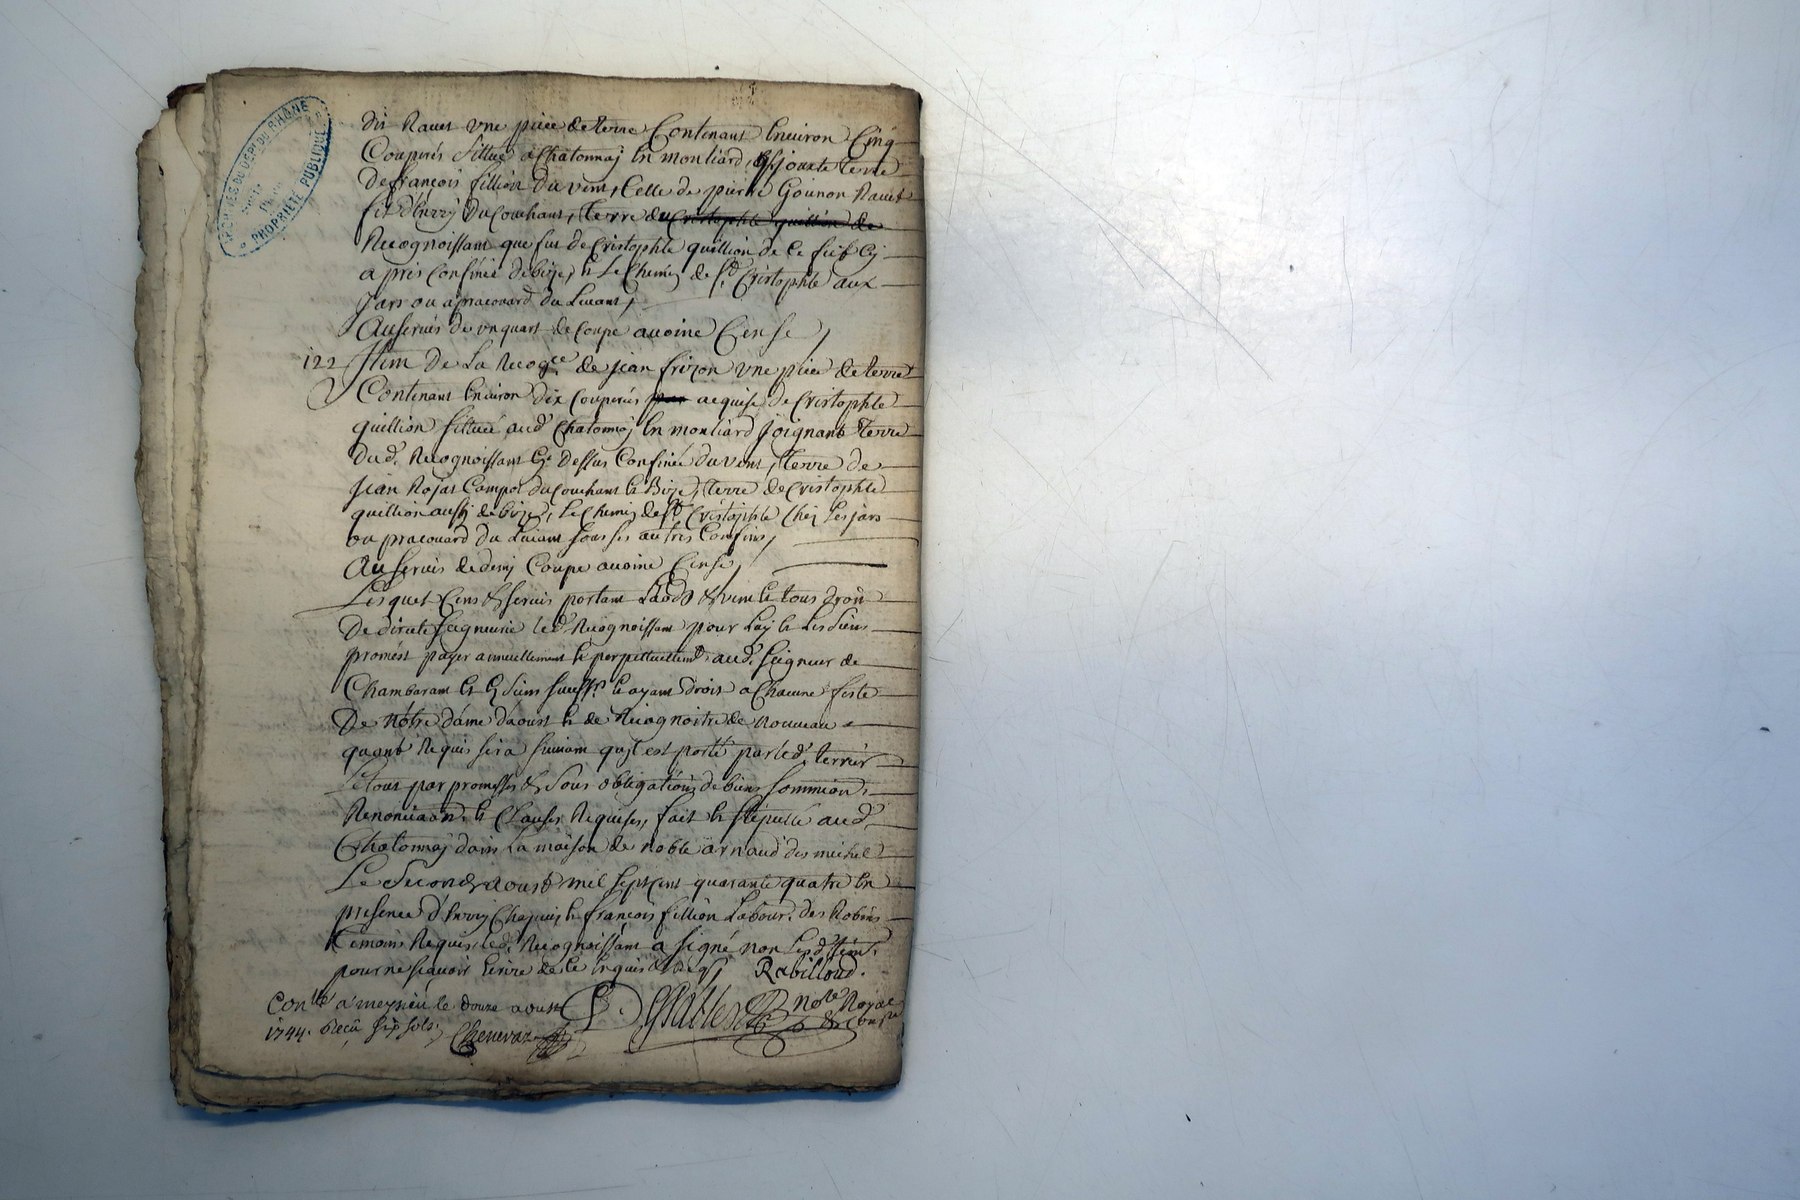 ARCHIVES DU DEPT DU RHÔNE
PROPRIÉTÉ PUBLIQUE
dit Ravet une piece de terre Contenant Environ Cinq
Couperés sittué a Chatonnaj En montiard, jouxte terre
de francois fillion du vent, Celle de pierre Gounon Ravet
fils d'henry du Couchant, terre du Cristophle quillion de
Recognoissant que fut de Cristophle quillion de Ce fief Cy
apres Confinée de bize, & Le Chemin de St Cristophle aux
Jars ou a pracouard du Levant,
Au servis de un quart de Coupe avoine Cense,
122 Item de La Recogce de jean frizon une piece de terre
Contenant Environ dix Couperés acquise de Cristophle
quillion sittuée aud. Chatonnaj En montiard Joignant terre
dud. Recognoissant Cy Dessus Confinée du vent, terre de
Jean Rojat Campet du Couchant & Bize, terre de Cristophle
quillion aussy de bize, Le Chemin de St Cristophle Chez Les jars
ou pracouard du Levant sous ses autres Confins,
Au servis de demy Coupe avoine Cense,
Lesquel Cens & servis portant Laods & vent & tous droit
De directe seigneurie led. Recognoissant pour Luy & Les siens
promest payer annuellement & perpetuellemt. aud. seigneur de
Chambarant & Es siens succrs. & ayant Droit a Chacune feste
De nôtre dâme d'aoust & de Recognoitre de Nouveau
quant Requis sera suivant qu'jl est porté par led. terrier
Le tout par promesses & sous obligations de biens soummions,
Renonciaons, & Clauses Requises, fait & stipullé aud.
Chatonnaj dans La maison de noble arnaud des michel
Le Second aoust mil sept Cent quarante quatre En
presence d'henry Chapuis & francois fillion Labour. des Robins
temoins Requis, led. Recognoissant a signé non Lesd. tem.
pour ne scavoir Ecrire de Ce Enquis & Requis Rabilloud.
Conllé a meyzieu le douze aoust nore Royal
1744. Reçu six sols. Chenevaz